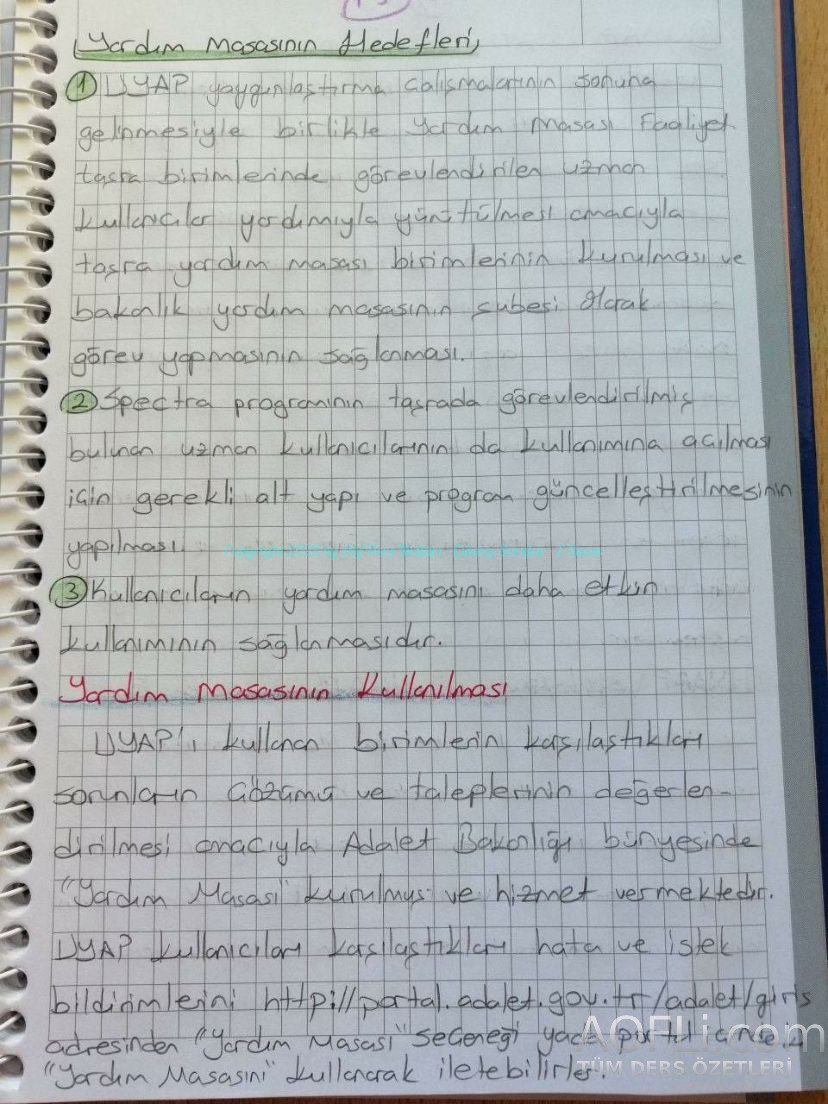 Yardım Masasının Hedefleri
① UYAP yaygınlaştırma çalışmalarının sonuna
gelinmesiyle birlikte yardım masası Faaliyet
taşra birimlerinde görevlendirilen uzman
kullanıcılar yardımıyla yürütülmesi amacıyla
taşra yardım masası birimlerinin kurulması ve
bakanlık yardım masasının şubesi olarak
görev yapmasının sağlanması.
② Spectra programının taşrada görevlendirilmiş
bulunan uzman kullanıcılarının da kullanımına açılması
için gerekli alt yapı ve program güncelleştirilmesinin
yapılması.
③ Kullanıcıların yardım masasını daha etkin
kullanımının sağlanmasıdır.
Yardım Masasının Kullanılması
UYAP'ı kullanan birimlerin karşılaştıkları
sorunların çözümü ve taleplerinin değerlen-
dirilmesi amacıyla Adalet Bakanlığı bünyesinde
"Yardım Masası" kurulmuş ve hizmet vermektedir.
UYAP kullanıcıları karşılaştıkları hata ve istek
bildirimlerini http://portal.adalet.gov.tr/adalet/giris
adresinden "Yardım Masası" seçeneği yada
"Yardım Masasını" kullanarak iletebilirler.
AOFLi.com
TÜM DERS ÖZETLERİ